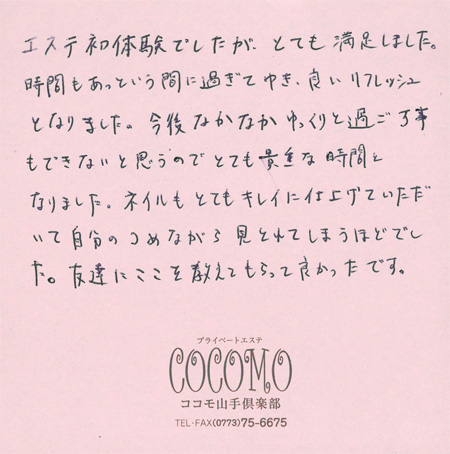 エステ初体験でしたが、とても満足しました。
時間もあっという間に過ぎてゆき、良いリフレッシュ
となりました。今後なかなかゆっくりと過ごす事
もできないと思うのでとても貴重な時間と
なりました。ネイルもとてもキレイに仕上げていただ
いて自分のつめながら見とれてしまうほどでし
た。友達にここを教えてもらって良かったです。
プライベートエステ
COCOMO
ココモ山手倶楽部
TEL・FAX(0773)75-6675